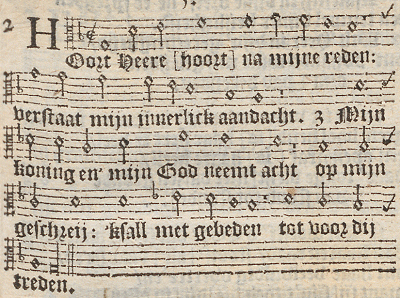 2
HOort Heere [hoort] na mijne reden:
verstaat mijn innerlick aandacht. 3 Mijn
koning en' mijn God neemt acht op mijn
geschreij: 'ksall met gebeden tot voor dij
treden.